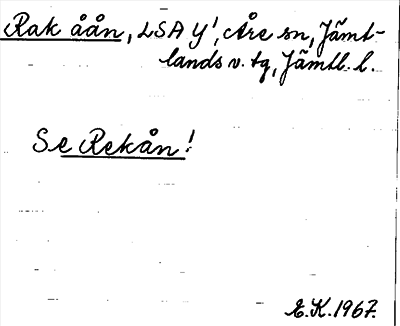 Rak åån, LSA Y!, Åre sn, Jämt-
lands v. tg, Jämtl. l.
Se Rekån!
E.K.1967.